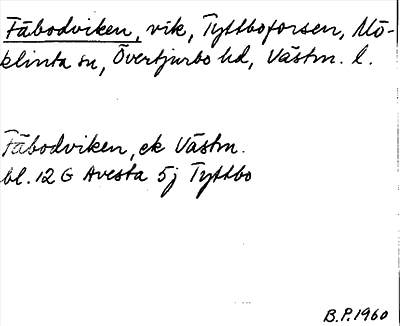 Fäbodviken, vik, Tyttboforsen, Mö-
klinta sn, Övertjurbo hd, Västm. l.
Fäbodviken, ek Västm.
bl. 12 G Avesta 5j Tyttbo
B.P. 1960